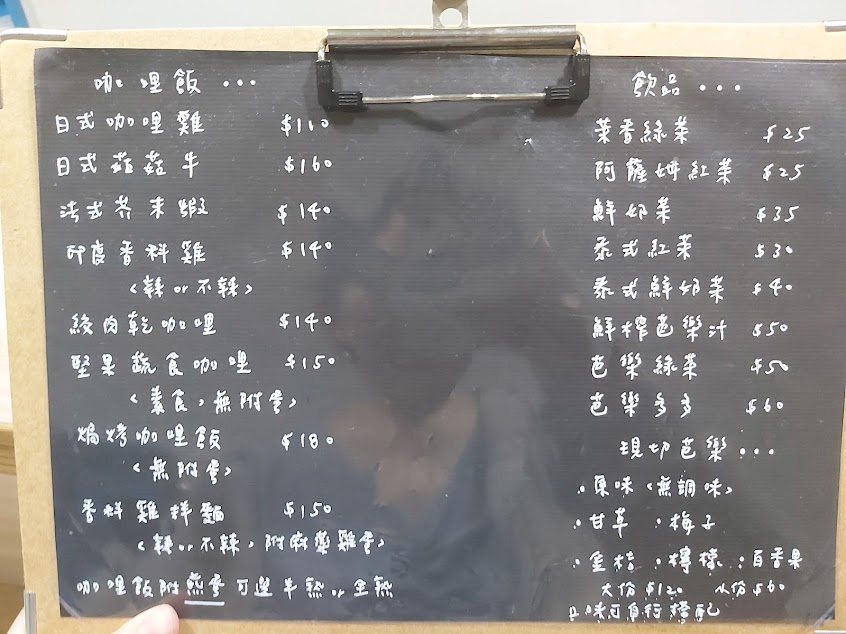 咖哩飯...
日式咖哩雞 $110
日式菇菇牛 $160
法式芥末蝦 $140
印度香料雞 $140
<辣or不辣>
絞肉乾咖哩 $140
堅果蔬食咖哩 $150
<素食,無附蛋>
焗烤咖哩飯 $180
<無附蛋>
香 雞拌麵 $150
<辣or不辣,附麻藥雞蛋>
咖哩飯附煎蛋可選半熟or全熟
飲品...
茉香綠茶 $25
阿薩姆紅茶 $25
鮮奶茶 $35
泰式紅茶 $30
泰式鮮奶茶 $40
鮮榨芭樂汁 $50
芭樂綠茶 $50
芭樂多多 $60
現切芭樂...
.原味<無調味>
.甘草 .梅子
.金桔 .檸檬 .百香果
大份$120 小份$60
口味可自行搭配